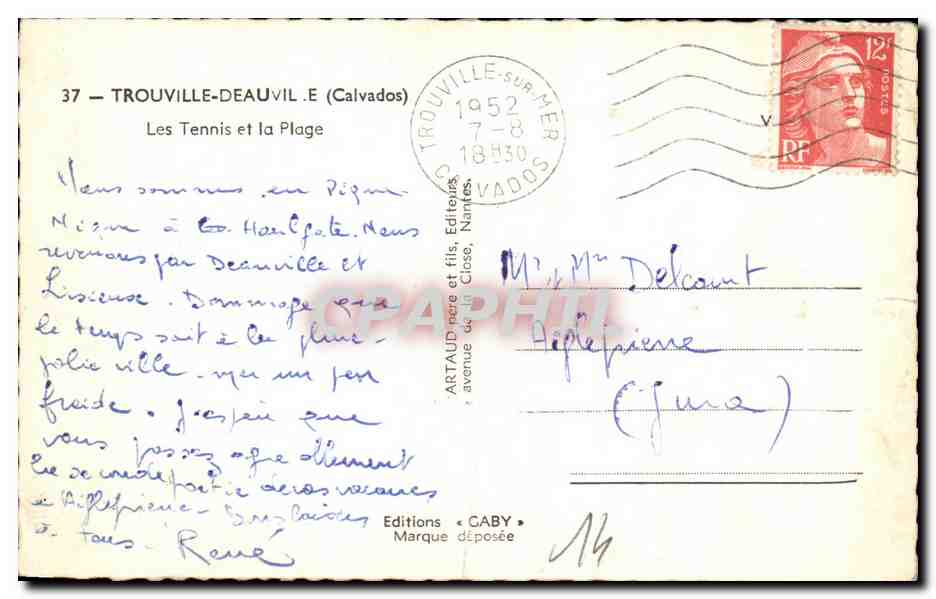 37 — TROUVILLE-DEAUVIL.E (Calvados)
Les Tennis et la Plage
TROUVILLE-SUR-MER
1952
7-8
18H30
CALVADOS
12F
POSTES
RF
V
Nous sommes en Pique-
Nique à Houlgate. Nous
revenons par Deauville et
Lisieux. Dommage que
le temps soit à la pluie -
jolie ville - mer un peu
froide. J'espère que
vous passez agréablement
la seconde partie de vos vacances
à Aiglepierre -
à tous - René
ARTAUD père et fils, Editeurs
avenue de la Close, Nantes.
Mr & Mme Delcourt
Aiglepierre
(Jura)
Editions « GABY »
Marque déposée
14
CPAPHIL